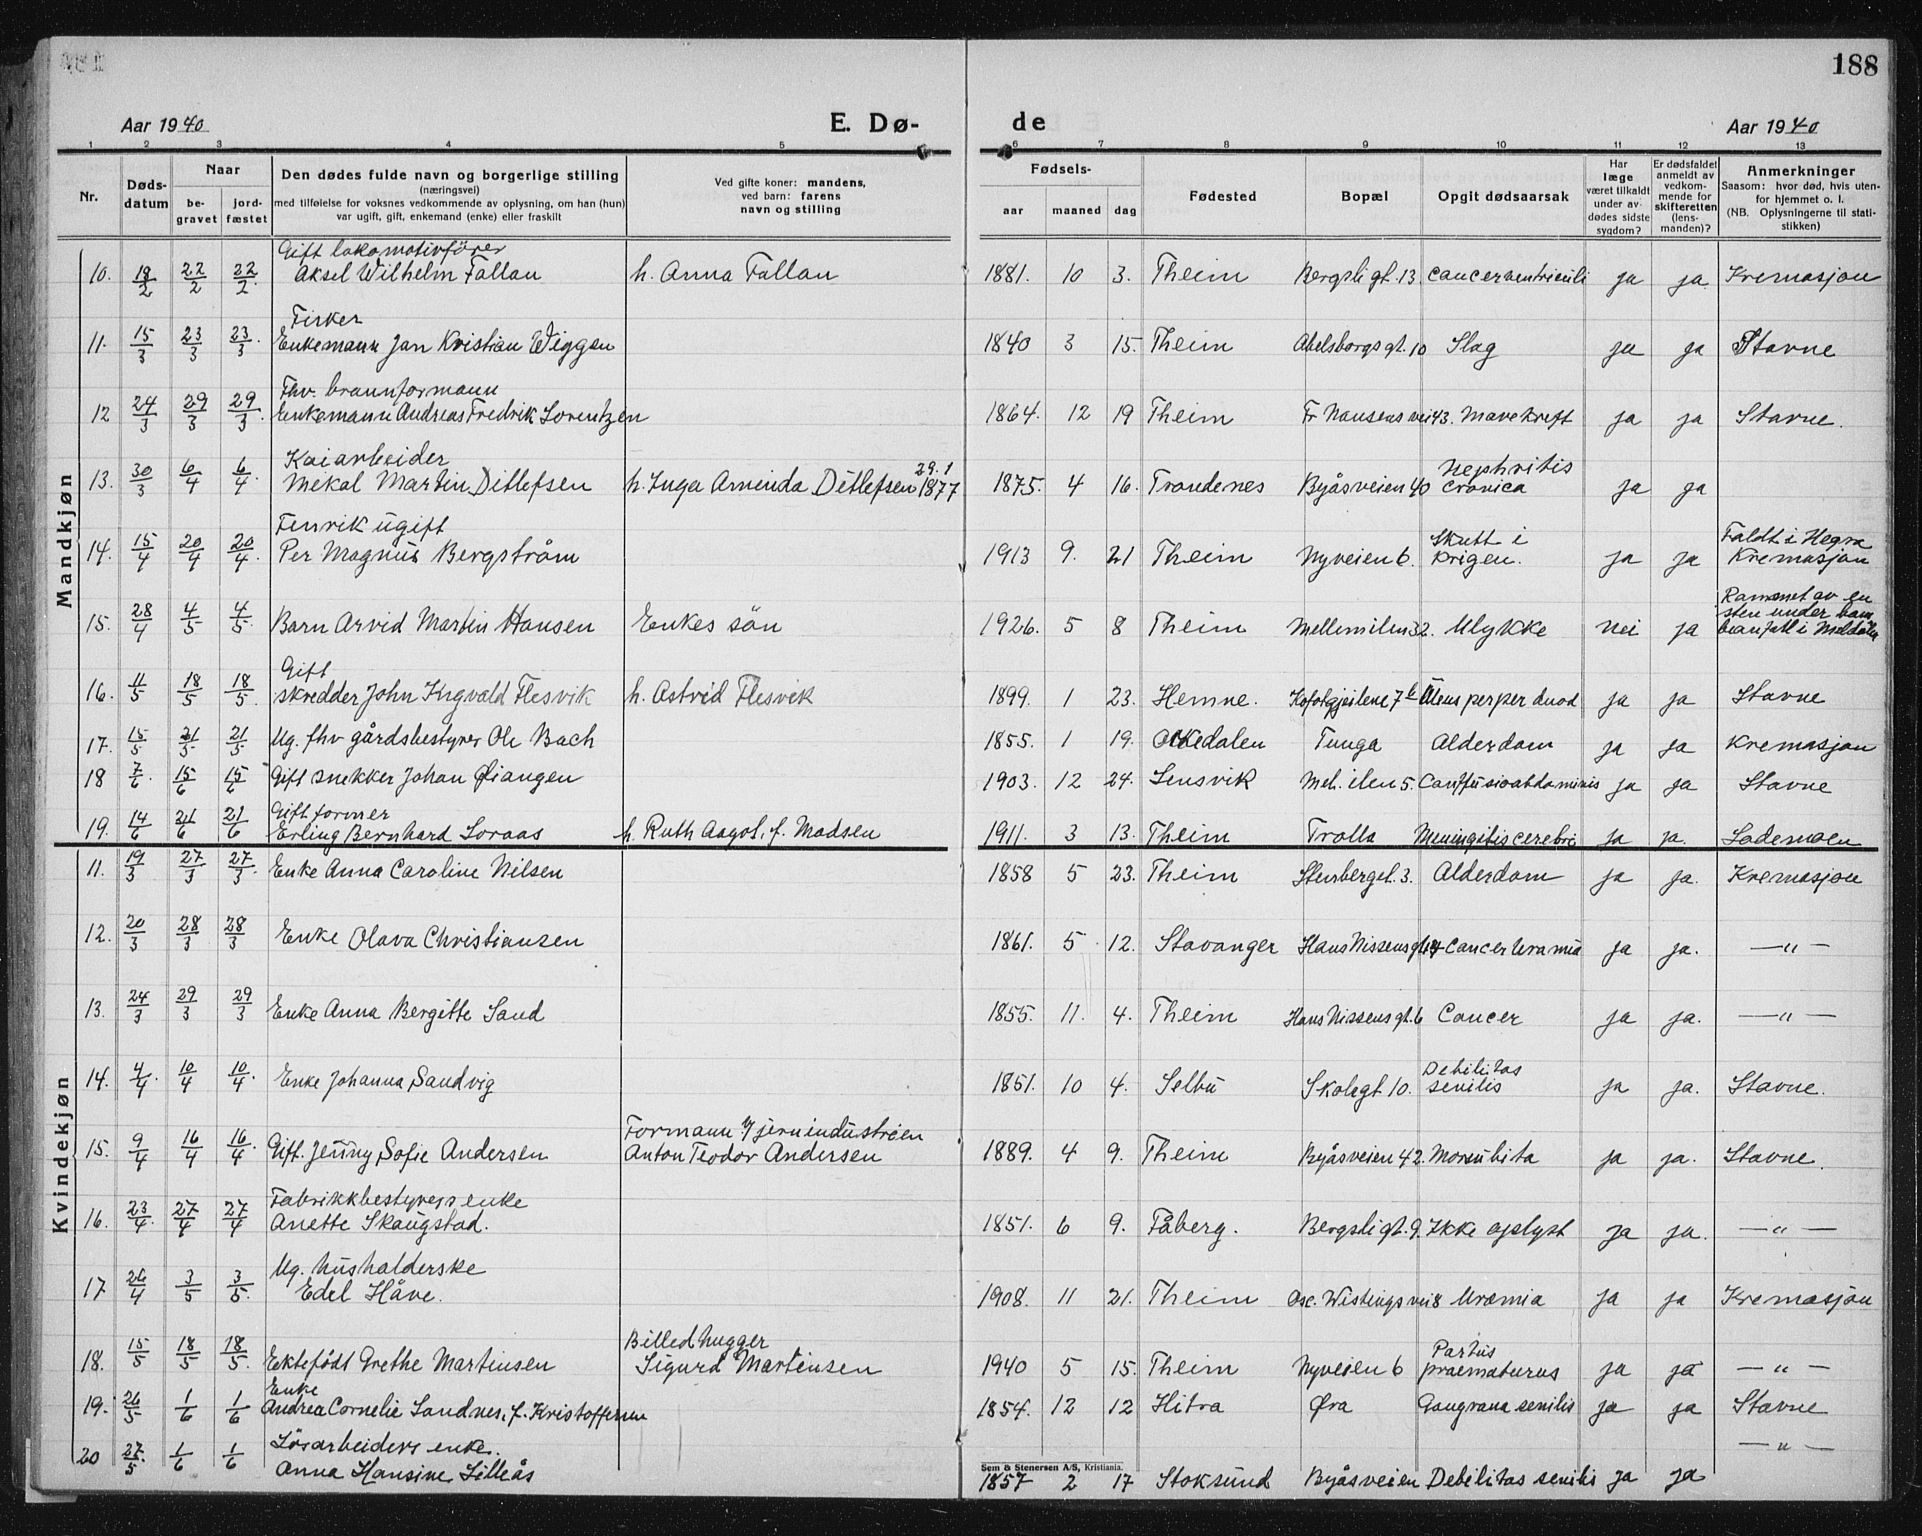 188
Aar 1940
E. Dø-
de
Aar 1940
1 2 3 4 5 6 7 8 9 10 11 12 13
Nr.
Døds-
datum
Naar
be-
gravet
jord-
fæstet
Den dødes fulde navn og borgerlige stilling
(næringsvei)
med tilføielse for voksnes vedkommende av oplysning, om han (hun)
var ugift, gift, enkemand (enke) eller fraskilt
Ved gifte koner: mandens,
ved barn: farens
navn og stilling
Fødsels-
aar maaned dag
Fødested
Bopæl
Opgit dødsaarsak
Har
læge
været tilkaldt
under av-
dødes sidste
sygdom?
Er dødsfaldet
anmeldt av
vedkom-
mende for
skifteretten
(lens-
manden)?
Anmerkninger
Saasom: hvor død, hvis uten-
for hjemmet o. l.
(NB. Oplysningerne til stati-
stikken)
Mandkjøn
Gift lokomotivfører
10. 18/2 22/2 22/2. Aksel Wilhelm Fallan h. Anna Fallan 1881. 10 3. Theim Bergsligt. 13. cancer ventriculi ja ja Kremasjon
Fisker
11. 15/3 23/3 23/3. Enkemann Jan Kristian Wiggen 1840 3 15. Theim Abelsborgsgt. 10 Slag ja ja Stavne
Fhv. brannformann
12 24/3 29/3 29/3. Enkemann Andreas Fredrik Lorentzen 1864. 12 19 Theim Fr Nansens vei 43. Mavekreft ja ja Stavne.
Kaiarbeider
13. 30/3 6/4 6/4. Mekal Martin Ditlefsen h. Inga Amanda Ditlefsen 29.1 1877 1875. 4 16. Trondenes Byåsveien 40 Nephritis cronica ja ja
Fenrik ugift
14. 15/4 20/4 20/4. Per Magnus Bergstrøm 1913 9. 21 Theim Nyveien 6. Skutt i krigen. ja ja Faldt i Hegra Kremasjon
15. 28/4 4/5 4/5. Barn Arvid Martin Hansen Enkes søn 1926. 5 8 Theim Mellemilen 32. Ulykke nei ja Rammet av en sten under bombeanfall i Meldalen
Gift
16. 11/5 18/5 18/5. skredder John Ingvald Flesvik h. Astrid Flesvik 1899. 1 23. Hemne. 7b Ulcus perper duod ja ja Stavne
17. 15/5 21/5 21/5 Ug. fhv gårdsbestyrer Ole Bach 1855. 1 19. Orkedalen Tunga Alderdom ja ja Kremasjon
18 7/6. 15/6 15/6 Gift snekker Johan Øiangen 1903. 12 24. Lensvik Mel. ilen 5. Conffusio abdominis ja ja Stavne
Gift former
19. 14/6 21/6 21/6 Erling Bernhard Soraas h. Ruth Aagot, f. Madsen 1911. 3 13. Theim Trolla Meningitis cerebri ja ja. Lademoen
Kvindekjøn
11. 19/3 27/3 27/3. Enke Anna Caroline Nilsen 1858 5 23. Theim Stensberget. 3. Alderdom ja ja. Kremasjon
12. 20/3 28/3 28/3 Enke Olava Christiansen 1861. 5 12. Stavanger Hans Nissensgt. Cancer Uramia ja ja. —"—
13. 24/3 29/3 29/3 Enke Anna Bergitte Sand 1855. 11. 4. Theim Hans Nissensgt. 6 Cancer ja ja. —"—
14. 4/4. 10/4 10/4. Enke Johanna Sandvig 1851. 10 4. Selbu Skolegt 10. Debilitas senilis ja ja. Stavne.
15. 9/4 16/4 16/4. Gift. Jenny Sofie Andersen Formann v/ jernindustrien Anton Teodor Andersen 1889. 4 9. Theim Byåsveien 42. Morsubita ja ja. Stavne.
Fabrikkbestyrers enke
16. 23/4. 27/4 27/4 Anette Skaugstad. 1851. 6 9. Fåberg. Bergsligt. 9. Ikke oplyst ja ja. —"—
Ug. husholderske
17. 26/4 3/5 3/5. Edel Håve. 1908. 11 21. Theim Osc. Wistings vei 8 Uramia ja ja Kremasjon
18. 15/5 18/5 18/5. Ektefødt Grethe Martinsen Billedhugger Sigurd Martinsen 1940 5 15. Theim Nyveien 6 Partus praematurus ja ja —"—
Enke
19. 26/5 1/6 1/6 Andrea Cornelie Sandnes, f. Kristoffersen 1854. 12 12 Hitra Øra Gangrana senilis ja ja Stavne
Løsarbeiders enke.
20 27/5. 1/6 1/6 Anna Hansine Lilleås 1857 2 17 Stoksund Byåsveien Debilitas senilis ja ja —"—
Sem & Stenersen A/S, Kristiania.